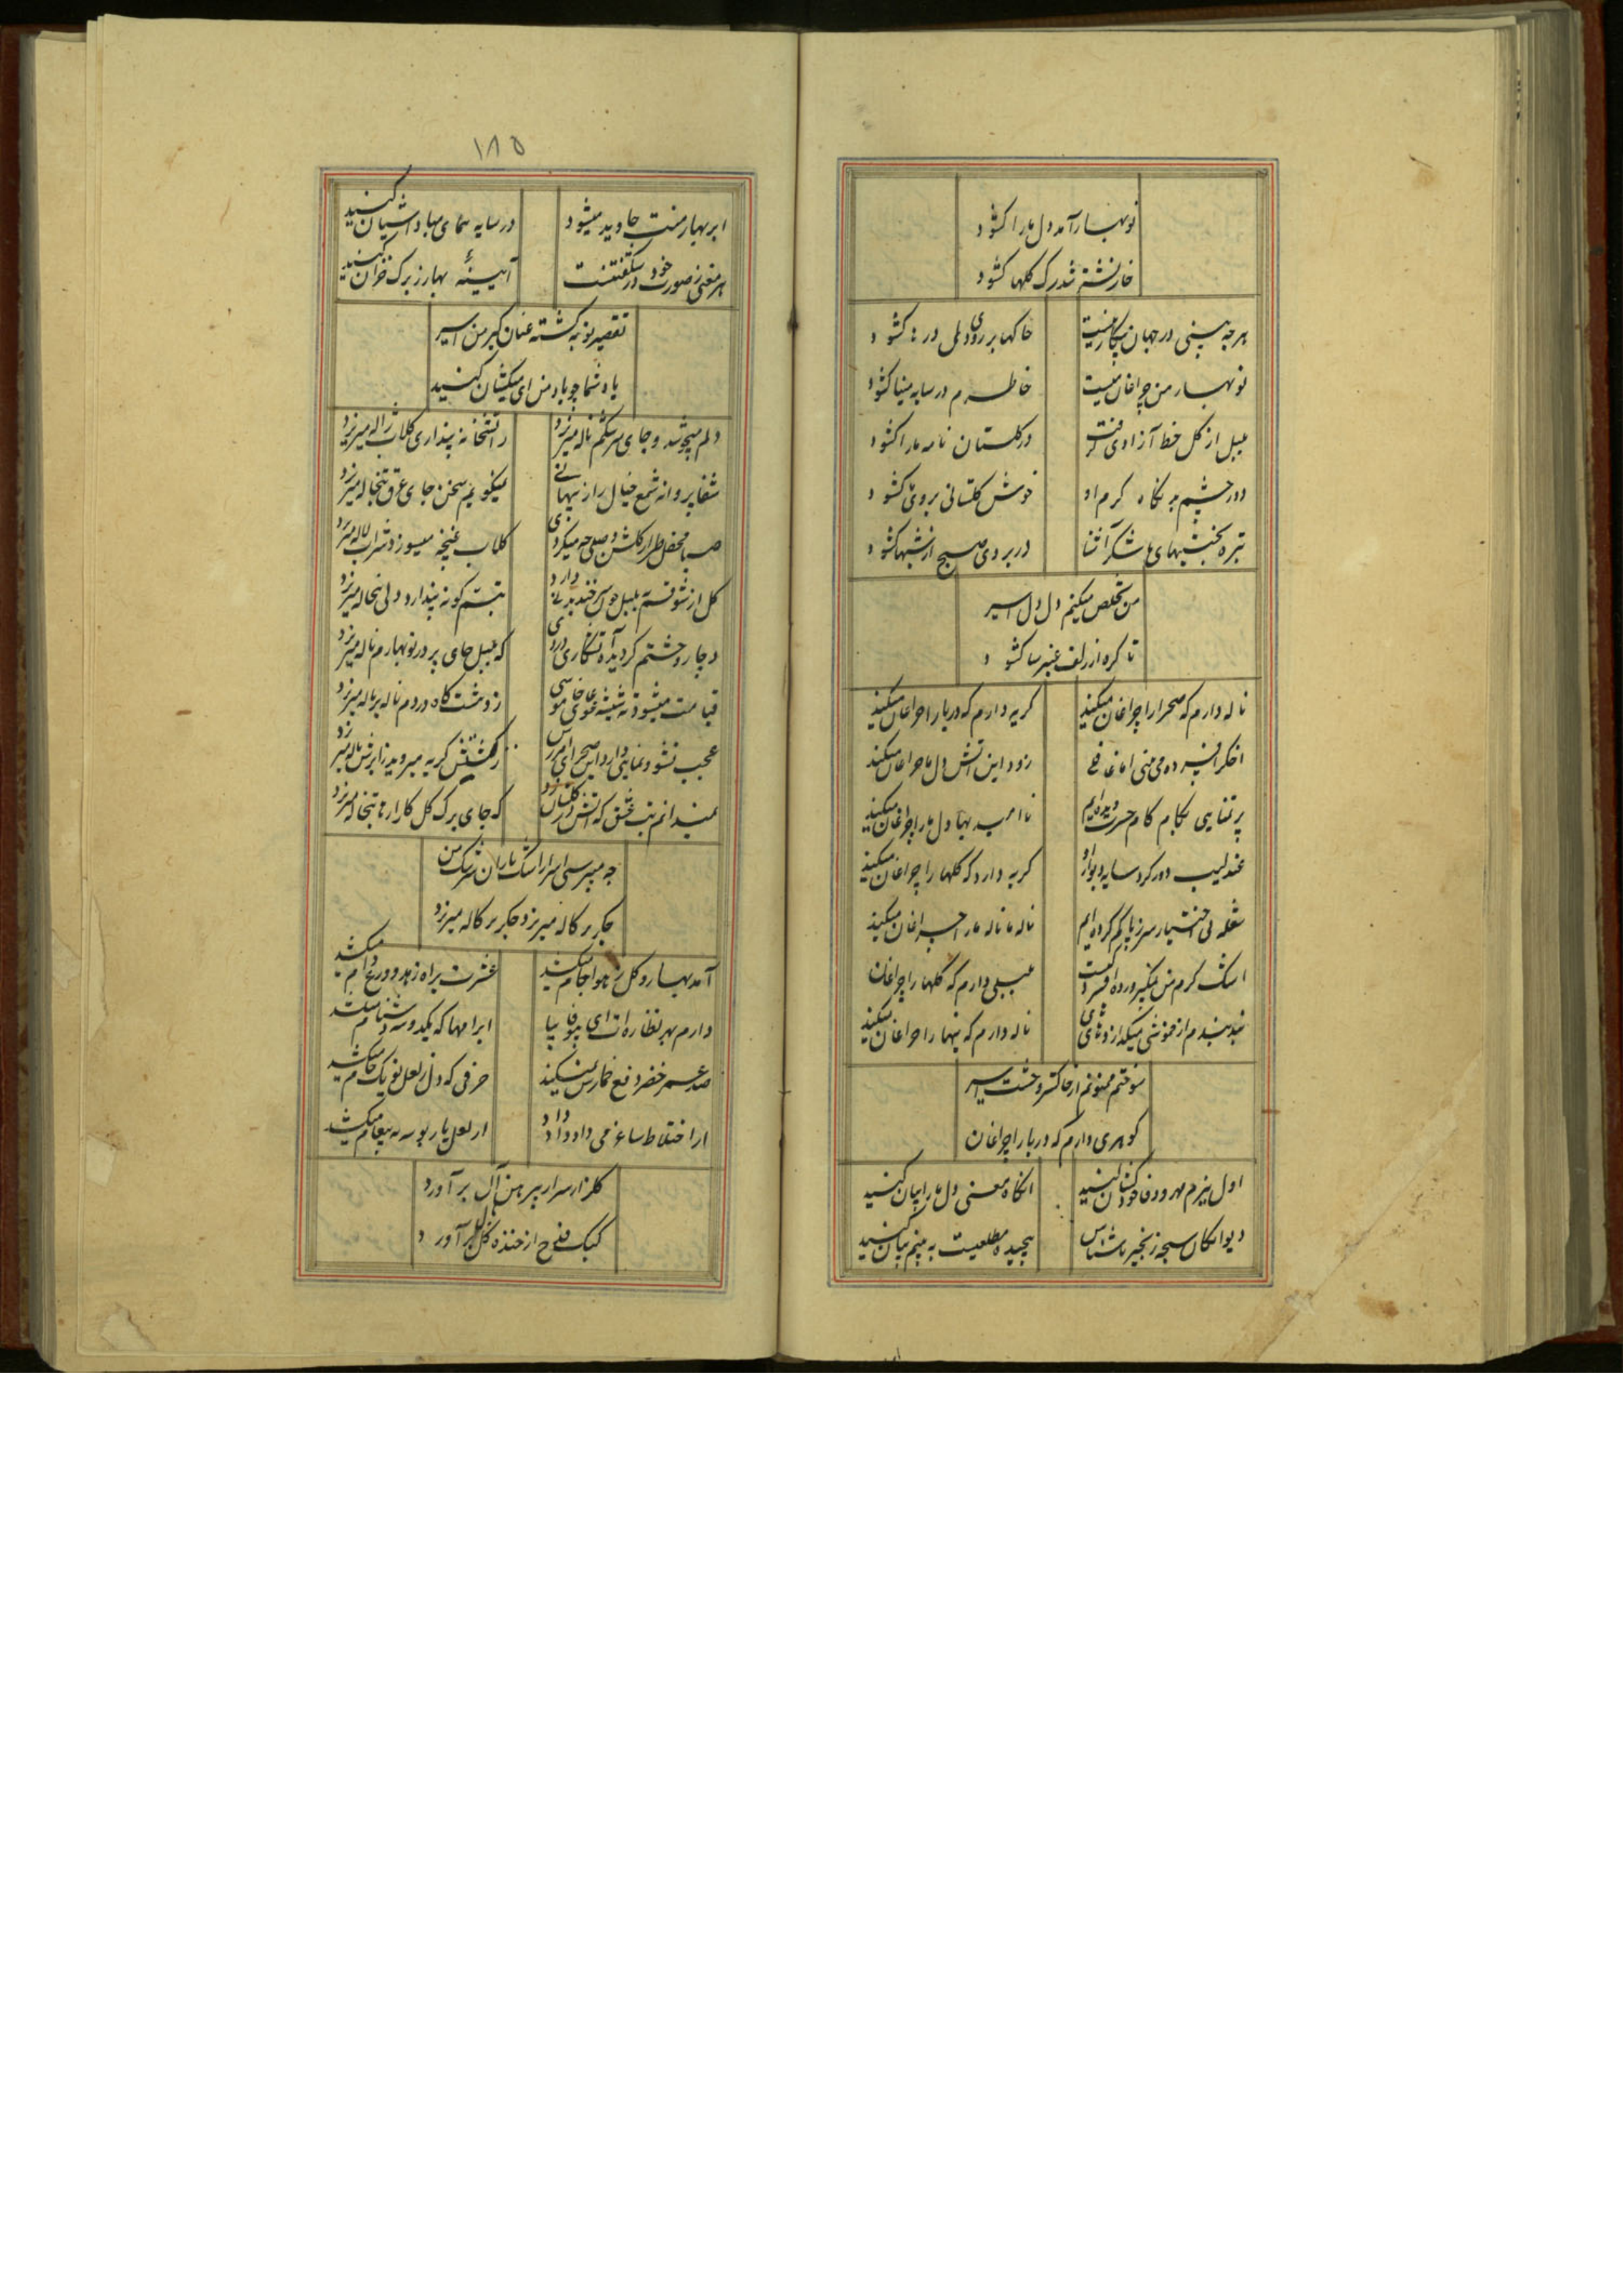 نوبهار آمد دل ما را کشود
خار نشتر شد رک کلها کشود
هر چه بینی در جهان بیکار نیست
خاکها بر روی دلی درها کشود
نوبهار من چراغان نیست
خاطرم در سایه مینا کشود
بلبل از کل خط آزادی کرفت
در کلستان نامه ما را کشود
دور چشم بد نکاه کرم او
خوش کلستانی بروی ما کشود
تیره بختیهای ما شکر آشنا
در بروی صبح از شبها کشود
من تخلص میکنم دل دل اسیر
تا کره از زلف عنبرسا کشود
ناله دارم که صحرا را چراغان میکند
کریه دارم که دریا را چراغان میکند
اخکر افسرده می بینی اما غافلی
زود این آتش دل ما را چراغان میکند
پر تمنایی بکام کام حسرت دیده ایم
ناامیدیها دل ما را چراغان میکند
عندلیب دور کرد سایه دیوار او
کریه دارد که کلها را چراغان میکند
شعله بی اختیار سر ز پا کم کرده ایم
ناله ما ناله ما را چراغان میکند
اشک کرم من
بلبلی دارم که کلها را چراغان
بند بندم از خموشی میکدازد
ناله دارم که نیها را چراغان میکند
سوختم ممنونم از خاکستر وحشت اسیر
کوهری دارم که دریا را چراغان
اول ببزم مهر و وفا خود کنید
انکاه معنی دل ما را بیان کنید
دیوانکان سبحه زنجیر ناشناس
پیچیده مطلعیست به بینم بیان کنید
۱۸۵
ابر بهار منت جاوید میشود
در سایه همای مباد آشیان کنید
هر معنی ز صورت خود در شکفتنست
آیینه بهار ز برک خزان کنید
تقصیر توبه کشته عنان کیر من اسیر
یاد شما چو باد من ای میکشان کنید
دلم میجوشد و جای سرشکم ناله میریزد
ز آتشخانه پنداری کلاب ژاله میریزد
شفا پروانه شمع خیال راز پنهانی
نمیکویم سخن جای عرق تبخاله میریزد
صبا محفل طراز کلشن وصلی چه میکردی
کلاب غنچه میسوزد شراب لاله میریزد
کل از شوق تبسم بلبل خون سر خنده دارد
تبسم کونه پندارد ولی تبخاله میریزد
دچار وحشتم کردیده
که بلبل جای پر در نوبهارم ناله میریزد
قیامت میشود ته شیشه
ز دمشت کاه دردم ناله پر ناله میریزد
عجب نشو و نمایی دارد این صحرای
ز کشتش کریه میروید ز ابرش ناله میریزد
نمیدانم تب عشق که آتش در کلستان زد
که جای برک کل کلزار ما تبخاله میریزد
چه میپرسی اسیر از اشک باران سرشک من
جکر پرکاله میریزد جکر پرکاله میریزد
آمد بهار و کل ز هوا جام میکشد
عشرت براه زهد و ورع دام میکشد
دارم بهر نظاره ات ای بیوفا بیا
ابرامها که یکدو سه دشنام میکشد
صد عمر خضر دفع خمارش نمیکند
حرفی که دل ز لعل تو یک جام میکشد
از اختلاط ساغر می داد داد داد
از لعل یار بوسه به پیغام میکشد
کلزار سر از پیرهن آل بر آورد
کبک قدح از خنده کل بال بر آورد